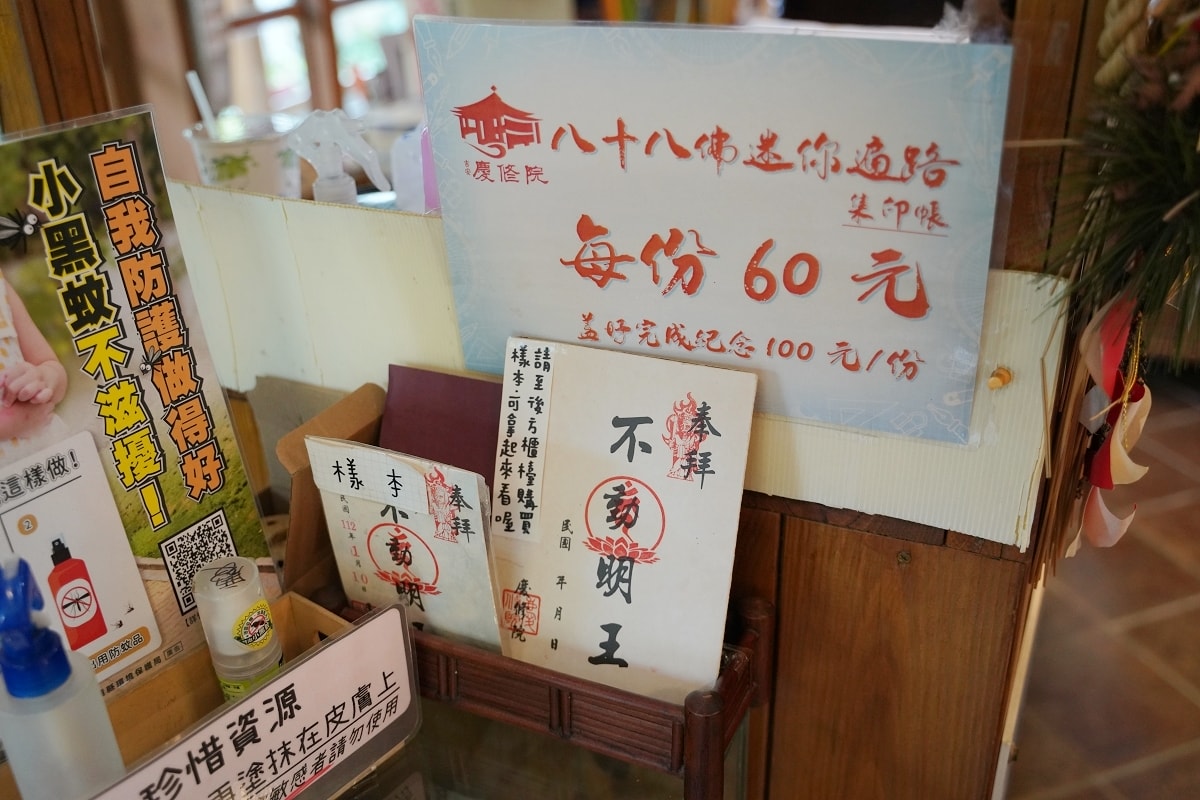 自我防護做得好
小黑蚊不滋擾！
這樣做！
2
用防蚊品
吉安
慶修院
八十八佛迷你遍路
集印帳
每份 60 元
蓋好完成紀念 100 元/份
請至後方櫃檯購買
樣本.可拿起來看喔
奉拜
不動明王
民國 年 月 日
慶修院
樣本
奉拜
不動明
民國
112年
1月
10
珍惜資源
再塗抹在皮膚上
敏感者請勿使用